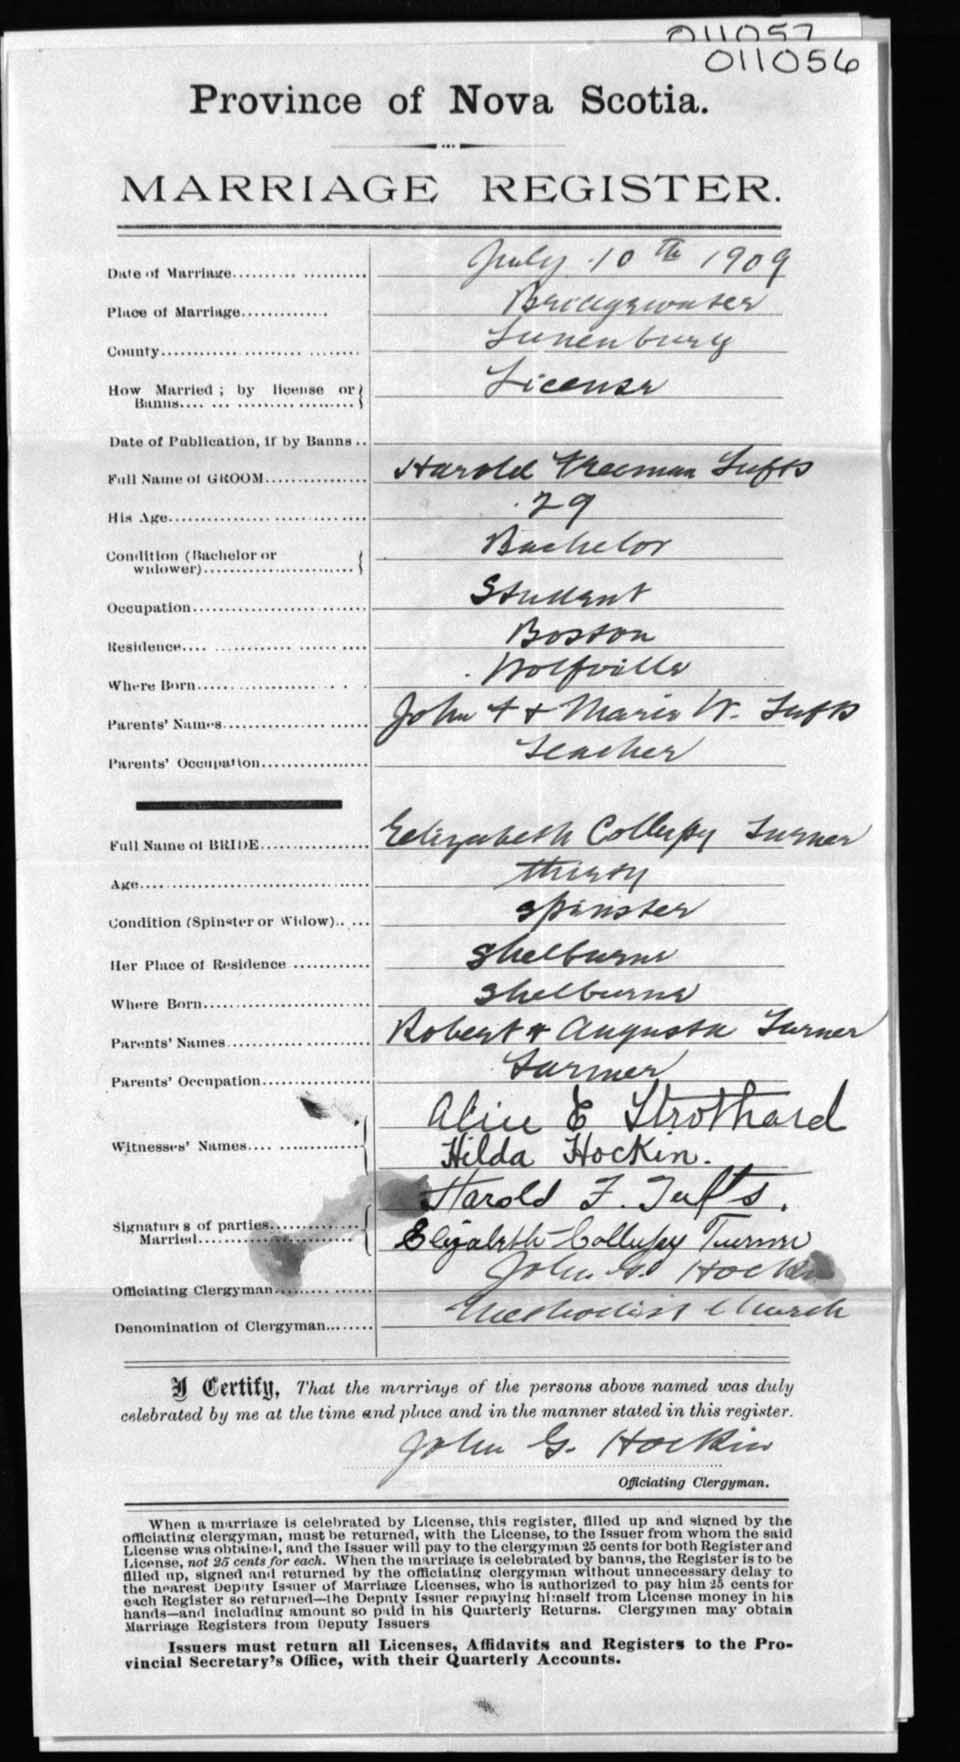 011057
011056
Province of Nova Scotia.
MARRIAGE REGISTER.
Date of Marriage..................... July 10th 1909
Place of Marriage............. Bridgewater
County............................ Lunenburg
How Married ; by license or Banns.................... License
Date of Publication, if by Banns ..
Full Name of GROOM................ Harold Freeman Tufts
His Age............................ 29
Condition (Bachelor or widower)........................ Bachelor
Occupation........................ Student
Residence.......................... Boston
Where Born........................ Wolfville
Parents' Names..................... John F & Marie W. Tufts
Parents' Occupation................ Teacher
Full Name of BRIDE................. Elizabeth Collupy Turner
Age.................................. thirty
Condition (Spinster or Widow)...... Spinster
Her Place of Residence ............ Shelburne
Where Born......................... Shelburne
Parents' Names..................... Robert & Augusta Turner
Parents' Occupation................ Farmer
Witnesses' Names.................. Alice E Strothard
Hilda Hockin.
Signatures of parties Married...................... Harold F. Tufts.
Elizabeth Collupy Turner
Officiating Clergyman............... John G. Hockin
Denomination of Clergyman........ Methodist Church
I Certify, That the marriage of the persons above named was duly
celebrated by me at the time and place and in the manner stated in this register.
John G. Hockin
Officiating Clergyman.
When a marriage is celebrated by License, this register, filled up and signed by the
officiating clergyman, must be returned, with the License, to the Issuer from whom the said
License was obtained, and the Issuer will pay to the clergyman 25 cents for both Register and
License, not 25 cents for each. When the marriage is celebrated by banns, the Register is to be
filled up, signed and returned by the officiating clergyman without unnecessary delay to
the nearest Deputy Issuer of Marriage Licenses, who is authorized to pay him 25 cents for
each Register so returned—the Deputy Issuer repaying himself from License money in his
hands—and including amount so paid in his Quarterly Returns. Clergymen may obtain
Marriage Registers from Deputy Issuers
Issuers must return all Licenses, Affidavits and Registers to the Pro-
vincial Secretary's Office, with their Quarterly Accounts.